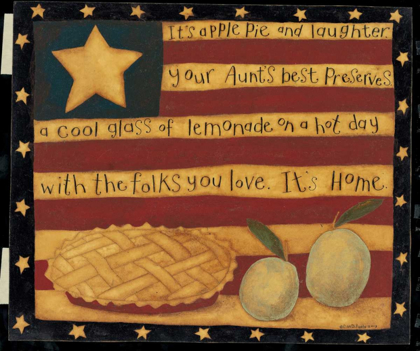 It's apple Pie and laughter
your Aunt's best Preserves
a cool glass of lemonade on a hot day
with the folks you love. It's Home.